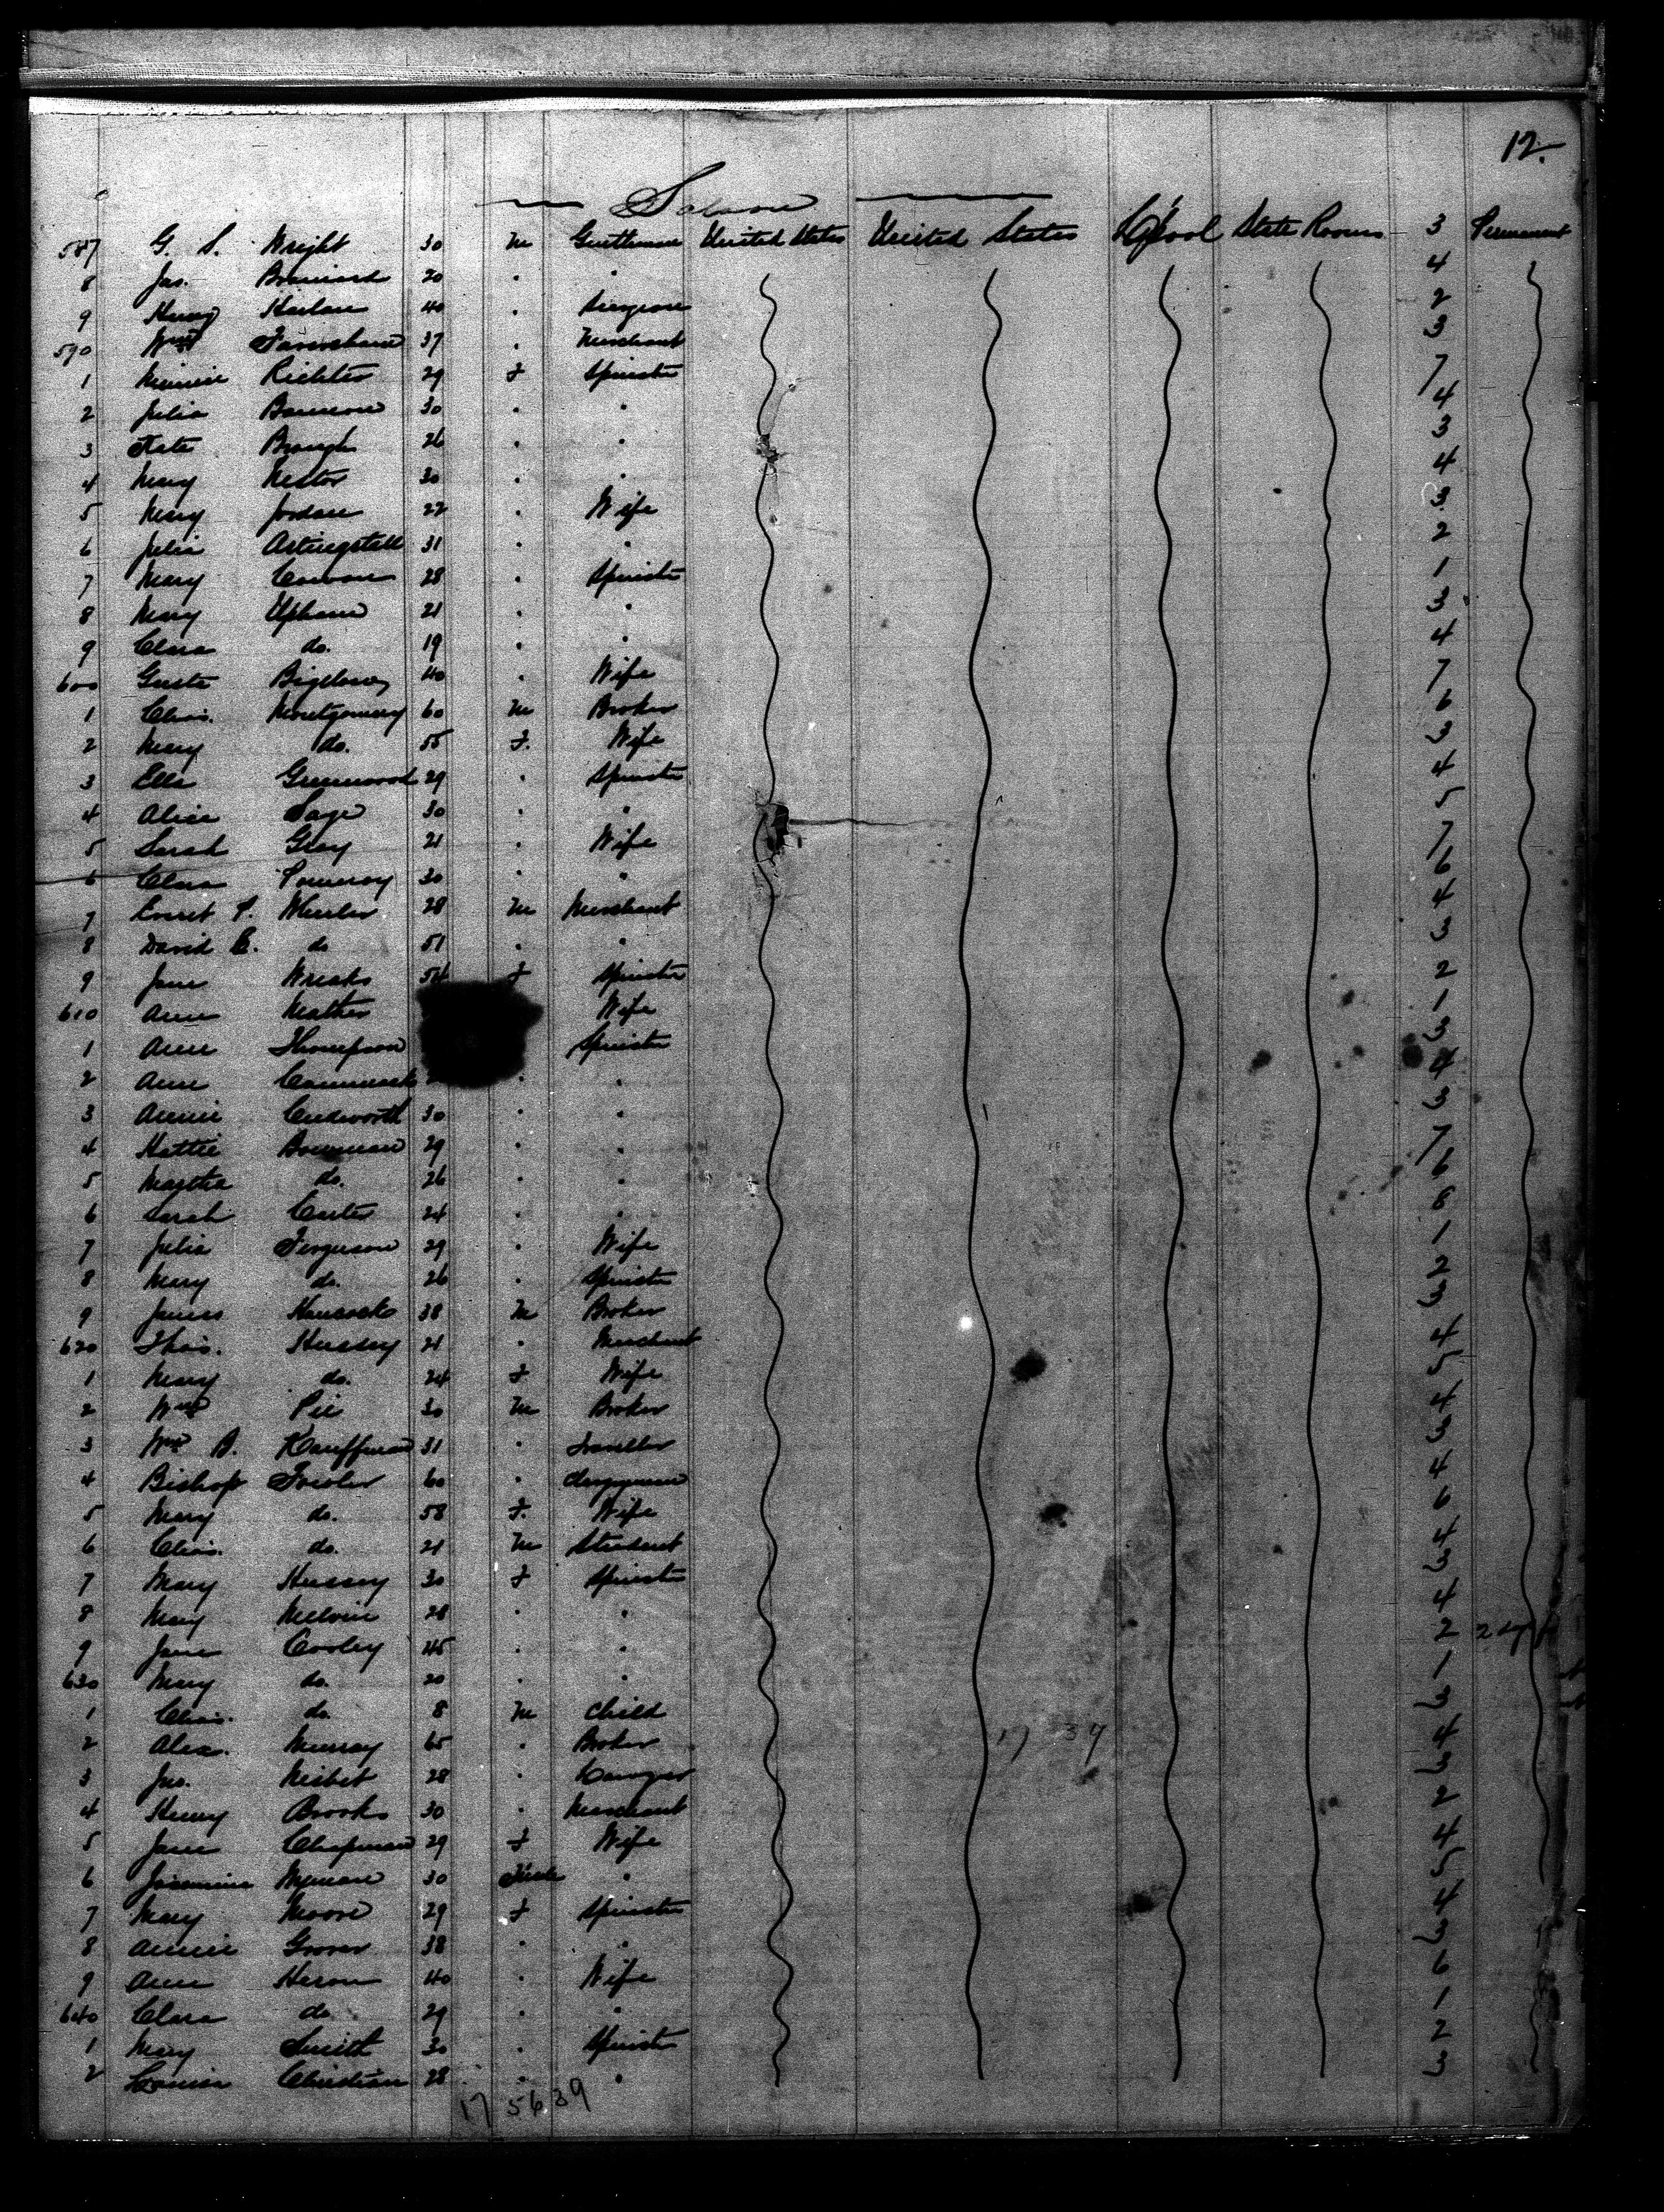 12.
Saloon
587 G. S. Wright 30 M Gentleman United States United States L'pool State Rooms 3 Permanent
8 Jas. Brainard 20 " " 4
9 Henry Harlan 40 " Surgeon 2
590 Wm 37 " Merchant 3
1 Minnie Richter 29 F Spinster 7
2 Julia 30 " " 4
3 Kate Brough 26 " " 3
4 Mary Nestor 30 " " 4
5 Mary Jordan 22 " Wife 3
6 Julia Artingstall 31 " " 2
7 Mary Cowan 28 " Spinster 1
8 Mary Upham 21 " " 3
9 Clara do. 19 " " 4
600 Guste Bigelow 40 " Wife 7
1 Chas. Montgomery 60 M Broker 6
2 Mary do. 55 F. Wife 3
3 Ella Greenwood 29 " Spinster 4
4 Alice Sage 30 " " 5
5 Sarah Gray 21 " Wife 7
6 Clara Pomeroy 30 " " 6
7 Everet P. Wheeler 28 M Merchant 4
8 David E. do 51 " " 3
9 Jane Wreaks 54 F Spinster 2
610 Ann Mather Wife 1
1 Ann Thompson Spinster 3
2 Ann Cammack " " 4
3 Annie Cudworth 30 " " 3
4 Hattie Bowman 29 " " 7
5 Martha do. 26 " " 6
6 Sarah Carter 24 " " 8
7 Julia Ferguson 29 " Wife 1
8 Mary do. 26 " Spinster 2
9 James Hancock 38 M Broker 3
620 Thos. Hussey 21 " Merchant 4
1 Mary do. 24 F Wife 5
2 Wm Pie 30 M Broker 4
3 Wm B. Kauffman 31 " Traveller 3
4 Bishop 60 " Clergyman 4
5 Mary do. 58 F. Wife 6
6 Chas. do. 21 M Student 4
7 Mary Hussey 30 F Spinster 3
8 Mary Melvin 28 " " 4
9 Jane Cooley 45 " " 2
630 Mary do. 20 " " 1
1 Chas. do. 8 M Child 3
2 Alex. Murray 65 " Broker 4
17 37
3 Jas. Nisbet 28 " Lawyer 3
4 Henry Brooks 30 " Merchant 2
5 Jane Chapman 29 F Wife 4
6 Wyman 30 " 5
7 Mary Moore 29 F Spinster 4
8 Annie Grover 38 " " 3
9 Ann Heron 40 " Wife 6
640 Clara do 29 " " 1
1 Mary Smith 30 " Spinster 2
2 Louisa Christian 28 " " 3
17 5639